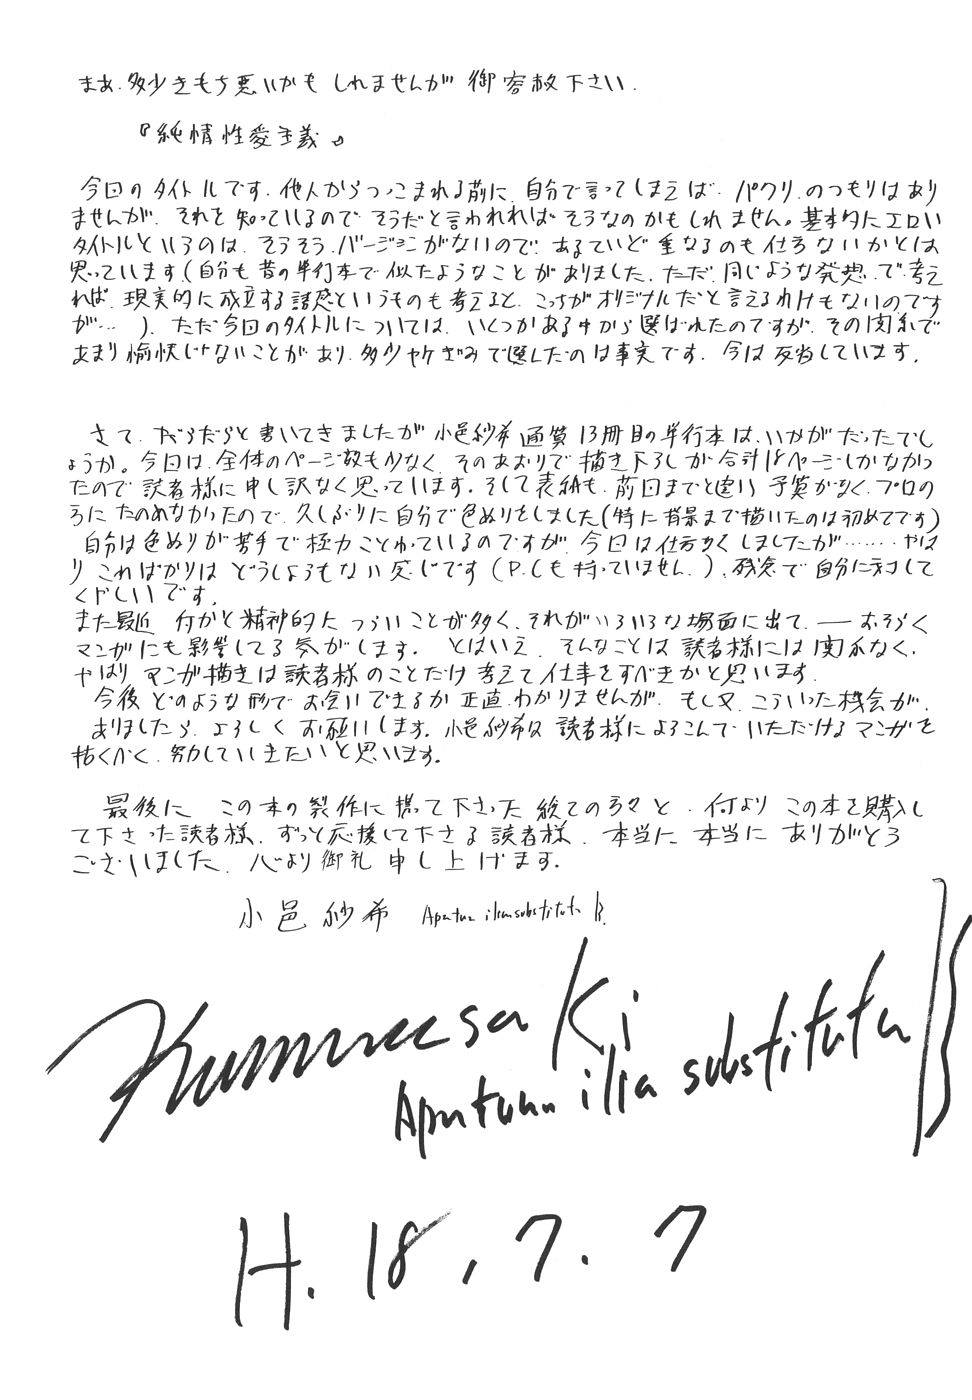 まあ、多少きもち悪いかもしれませんが御容赦下さい。
『純情性愛主義』
今回のタイトルです。他人からつっこまれる前に、自分で言ってしまえば、パクリ、のつもりはあり
ませんが、それを知っているのでそうだと言われればそうなのかもしれません。基本的にエロい
タイトルというのは、そうそうバージョンがないので、あるていど重なるのも仕方ないかとは
思っています(自分も昔の単行本で似たようなことがありました、ただ、同じような発想、で考え
れば、現実的に成立する誘惑というものも考えると、こっちがオリジナルだと言えるわけもないのです
が…)、ただ今回のタイトルについては、いくつかある中から選ばれたのですが、その関係で
あまり愉快じゃないことがあり、多少ヤケぎみで選んだのは事実です。今は反省しています。
さて、だらだらと書いてきましたが小邑紗希通算13冊目の単行本は、いかがだったでし
ょうか。今回は、全体のページ数も少なく、そのあおりで描き下ろしが合計18ページしかなかっ
たので読者様に申し訳なく思っています。そして表紙も、前回までと違い予算がなく、プロの
方にたのめなかったので、久しぶりに自分で色ぬりをしました(特に背景まで描いたのは初めてです)
自分は色ぬりが苦手で極力ことわっているのですが、今回は仕方なくしましたが……やは
りこればかりはどうしょうもない感じです(P.Cも持っていません、)、残念で自分に対して
くやしいです。
また最近 何かと精神的につらいことが多く、それがいろいろな場面に出て、―おそらく
マンガにも影響してる気がします。とはいえ、そんなことは読者様には関係なく、
やはりマンガ描きは読者様のことだけ考えて仕事をすべきかと思います。
今後どのような形でお会いできるか正直わかりませんが、もし又、こういった機会が、
ありましたら、よろしくお願いします。小邑紗希は読者様によろこんでいただけるマンガを
描くべく、努力していきたいと思います。
最後に この本の製作に携って下さった総ての方々と、何よりこの本を購入し
て下さった読者様、ずっと応援して下さる読者様、本当に本当にありがとう
ございました、心より御礼申し上げます。
小邑紗希 Apatura ilia substituta B.
Kumura saKi
Apatura ilia substituta B
H.18,7.7